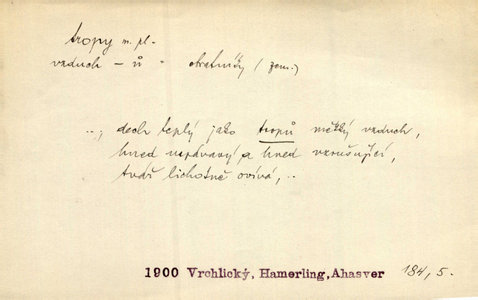 tropy m. pl.
vzduch – ů – obratníky (zem.)
.., dech teplý jako tropů měkký vzduch,
hned uspávavý a hned vzrušující,
tvář lichotně ovívá, ..
1900 Vrchlický, Hamerling, Ahasver 184, 5.